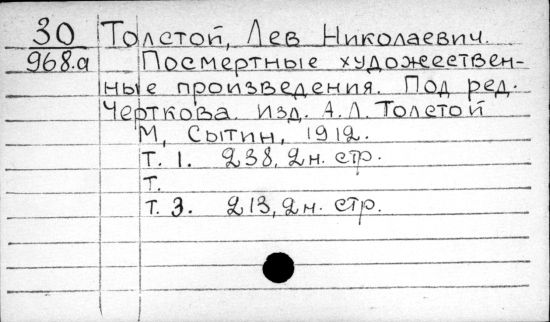 30 Толстой, Лев Николаевич.
968.а Посмертные художествен-
ные произведения. Под ред.
Черткова. Изд. А.Л. Толстой
М, Сытин, 1912.
Т. 1. 238, 2н. стр.
Т.
Т. 3. 213, 2н. стр.